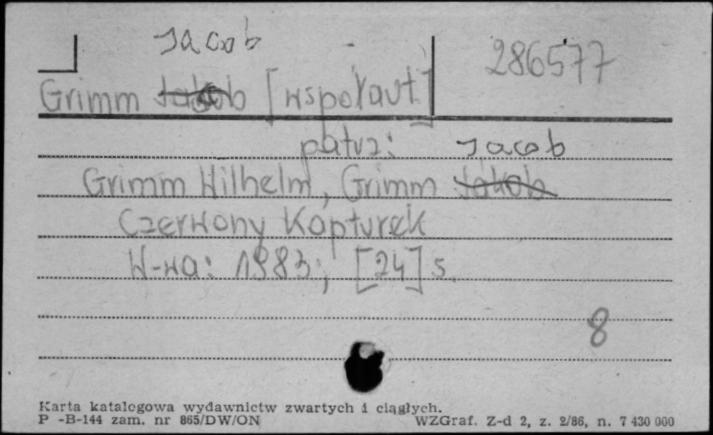 Jacob
286577
Grimm Jakob [współaut.]
patrz: Jacob
Grimm Wilhelm, Grimm Jakob
Czerwony Kapturek
W-wa: 1983; [24] s.
8
Karta katalogowa wydawnictw zwartych i ciągłych.
P -B-144 zam. nr 865/DW/ON WZGraf. Z-d 2, z. 2/86, n. 7 430 000